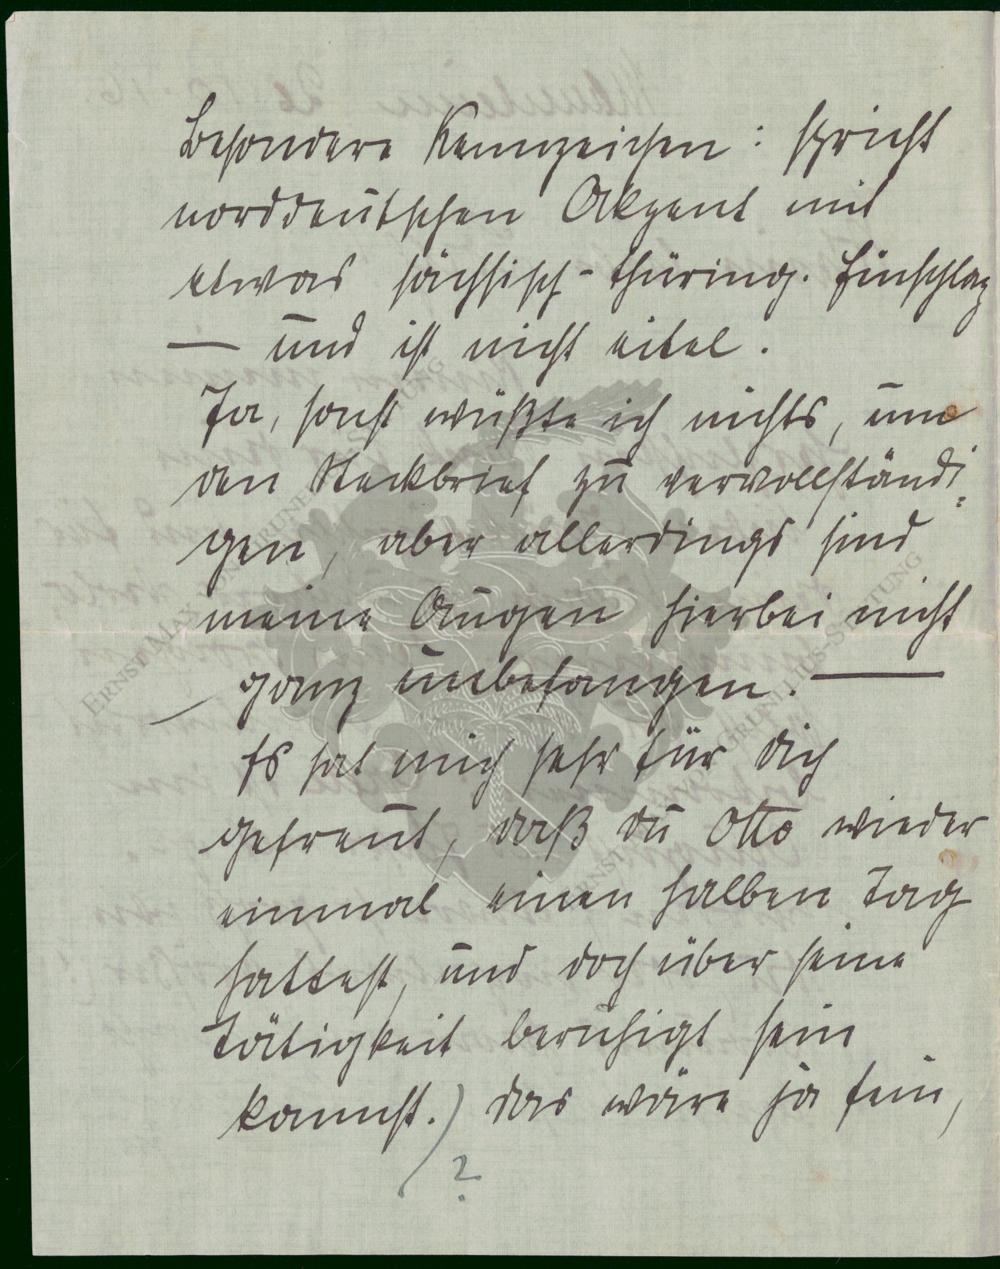 Besondere Kennzeichen: spricht
norddeutschen Akzent mit
etwas sächsisch-thüring. Einschlag
— und ist nicht eitel.
Ja, sonst wüßte ich nichts, um
den Steckbrief zu vervollständi-
gen, aber allerdings sind
meine Augen hierbei nicht
ganz unbefangen. —
Es hat mich sehr für Dich
gefreut, daß du Otto wieder
einmal einen halben Tag
hattest, und doch über seine
Tätigkeit beruhigt sein
kannst.) das wäre ja fein,
?